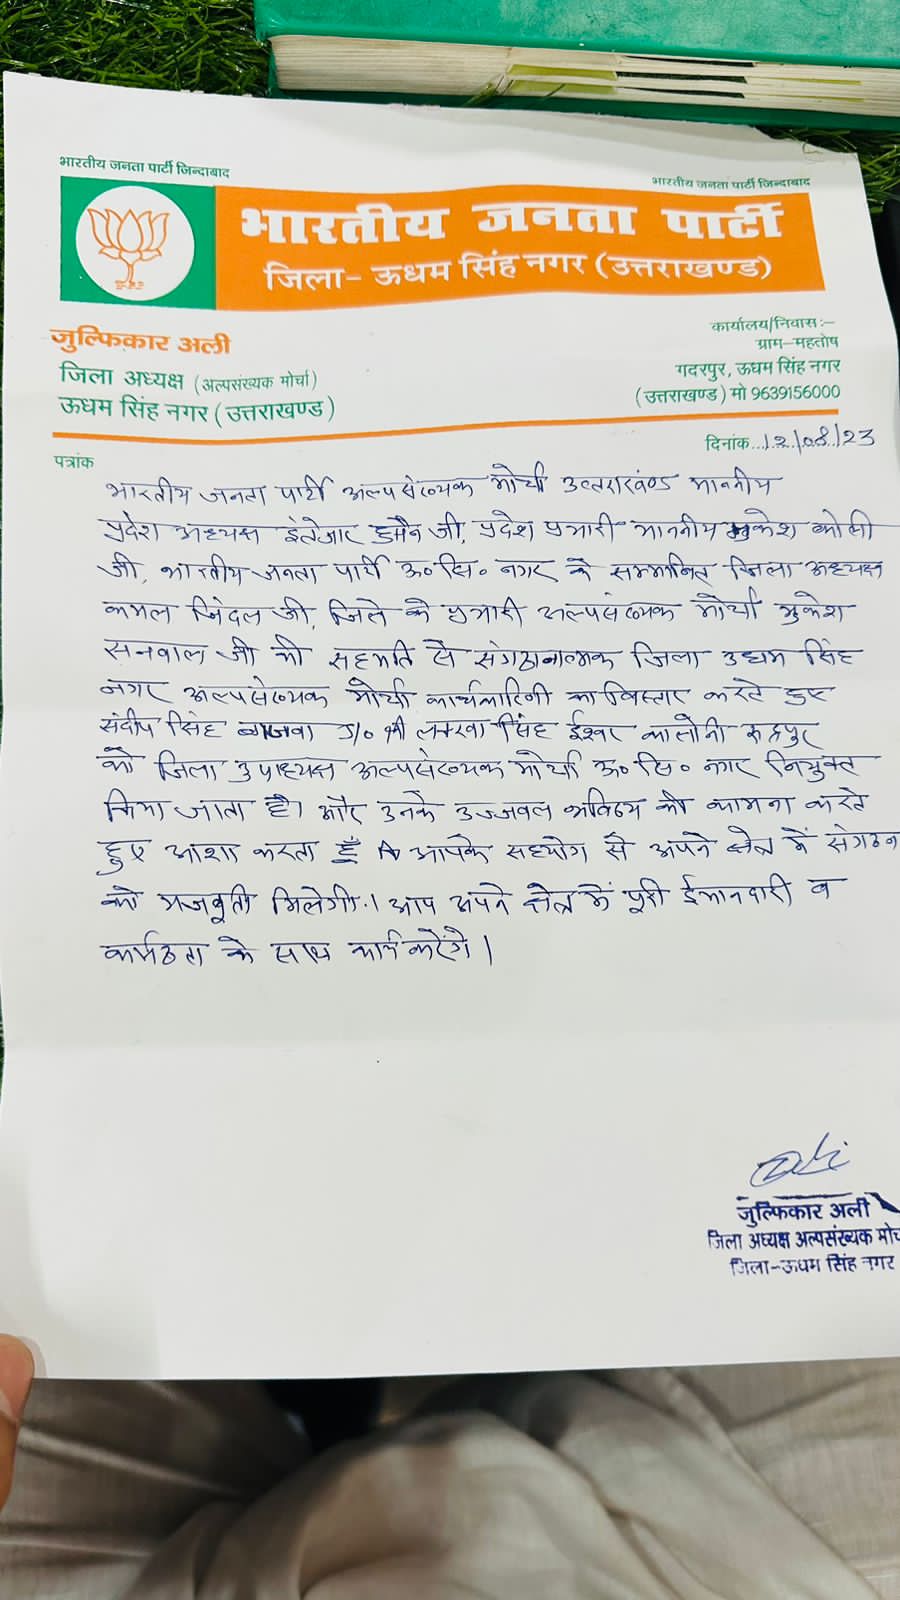 भारतीय जनता पार्टी जिन्दाबाद
भारतीय जनता पार्टी जिन्दाबाद
भारतीय जनता पार्टी
जिला- ऊधम सिंह नगर (उत्तराखण्ड)
जुल्फिकार अली
जिला अध्यक्ष (अल्पसंख्यक मोर्चा)
ऊधम सिंह नगर (उत्तराखण्ड)
कार्यालय/निवास :-
ग्राम-महतोष
गदरपुर, ऊधम सिंह नगर
(उत्तराखण्ड) मो 9639156000
पत्रांक
दिनांक...12/08/23
भारतीय जनता पार्टी अल्पसंख्यक मोर्चा उत्तराखण्ड माननीय
प्रदेश अध्यक्ष इंतेजार हुसैन जी, प्रदेश प्रभारी माननीय मुकेश कोली
जी, भारतीय जनता पार्टी ऊ० सि० नगर के सम्मानित जिला अध्यक्ष
कमल जिंदल जी, जिले के प्रभारी अल्पसंख्यक मोर्चा मुकेश
सनवाल जी की सहमति से संगठनात्मक जिला उधम सिंह
नगर अल्पसंख्यक मोर्चा कार्यकारिणी का विस्तार करते हुए
संदीप सिंह बाजवा S/o श्री लक्खा सिंह ईश्वर कालोनी रुद्रपुर
को जिला उपाध्यक्ष अल्पसंख्यक मोर्चा ऊ० सि० नगर नियुक्त
किया जाता है। और उनके उज्जवल भविष्य की कामना करते
हुए आशा करता हूँ आपके सहयोग से अपने क्षेत्र में संगठन
को मजबूती मिलेगी। आप अपने क्षेत्र में पूरी ईमानदारी व
कर्मठता के साथ कार्य करेंगे।
जुल्फिकार अली
जिला अध्यक्ष अल्पसंख्यक मोर्चा
जिला-ऊधम सिंह नगर